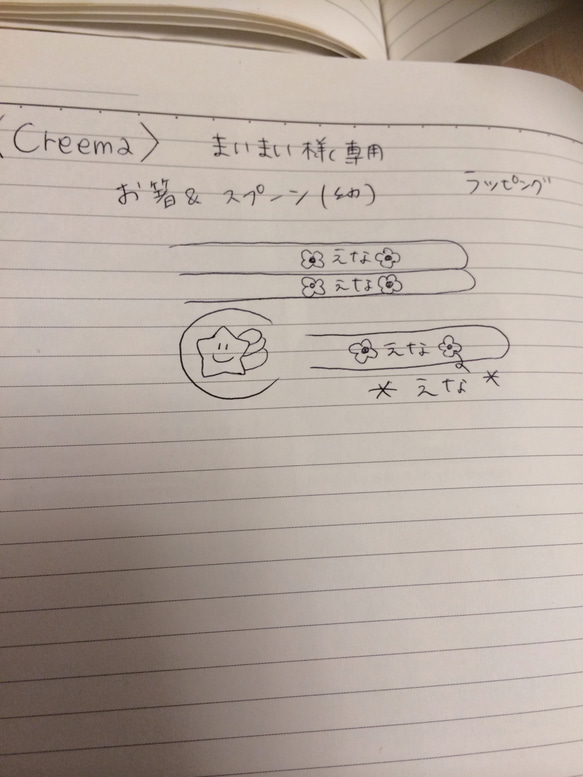 〈Creema〉 まいまい様専用
お箸& スプーン(幼) ラッピング
えな
えな
えな
* えな *